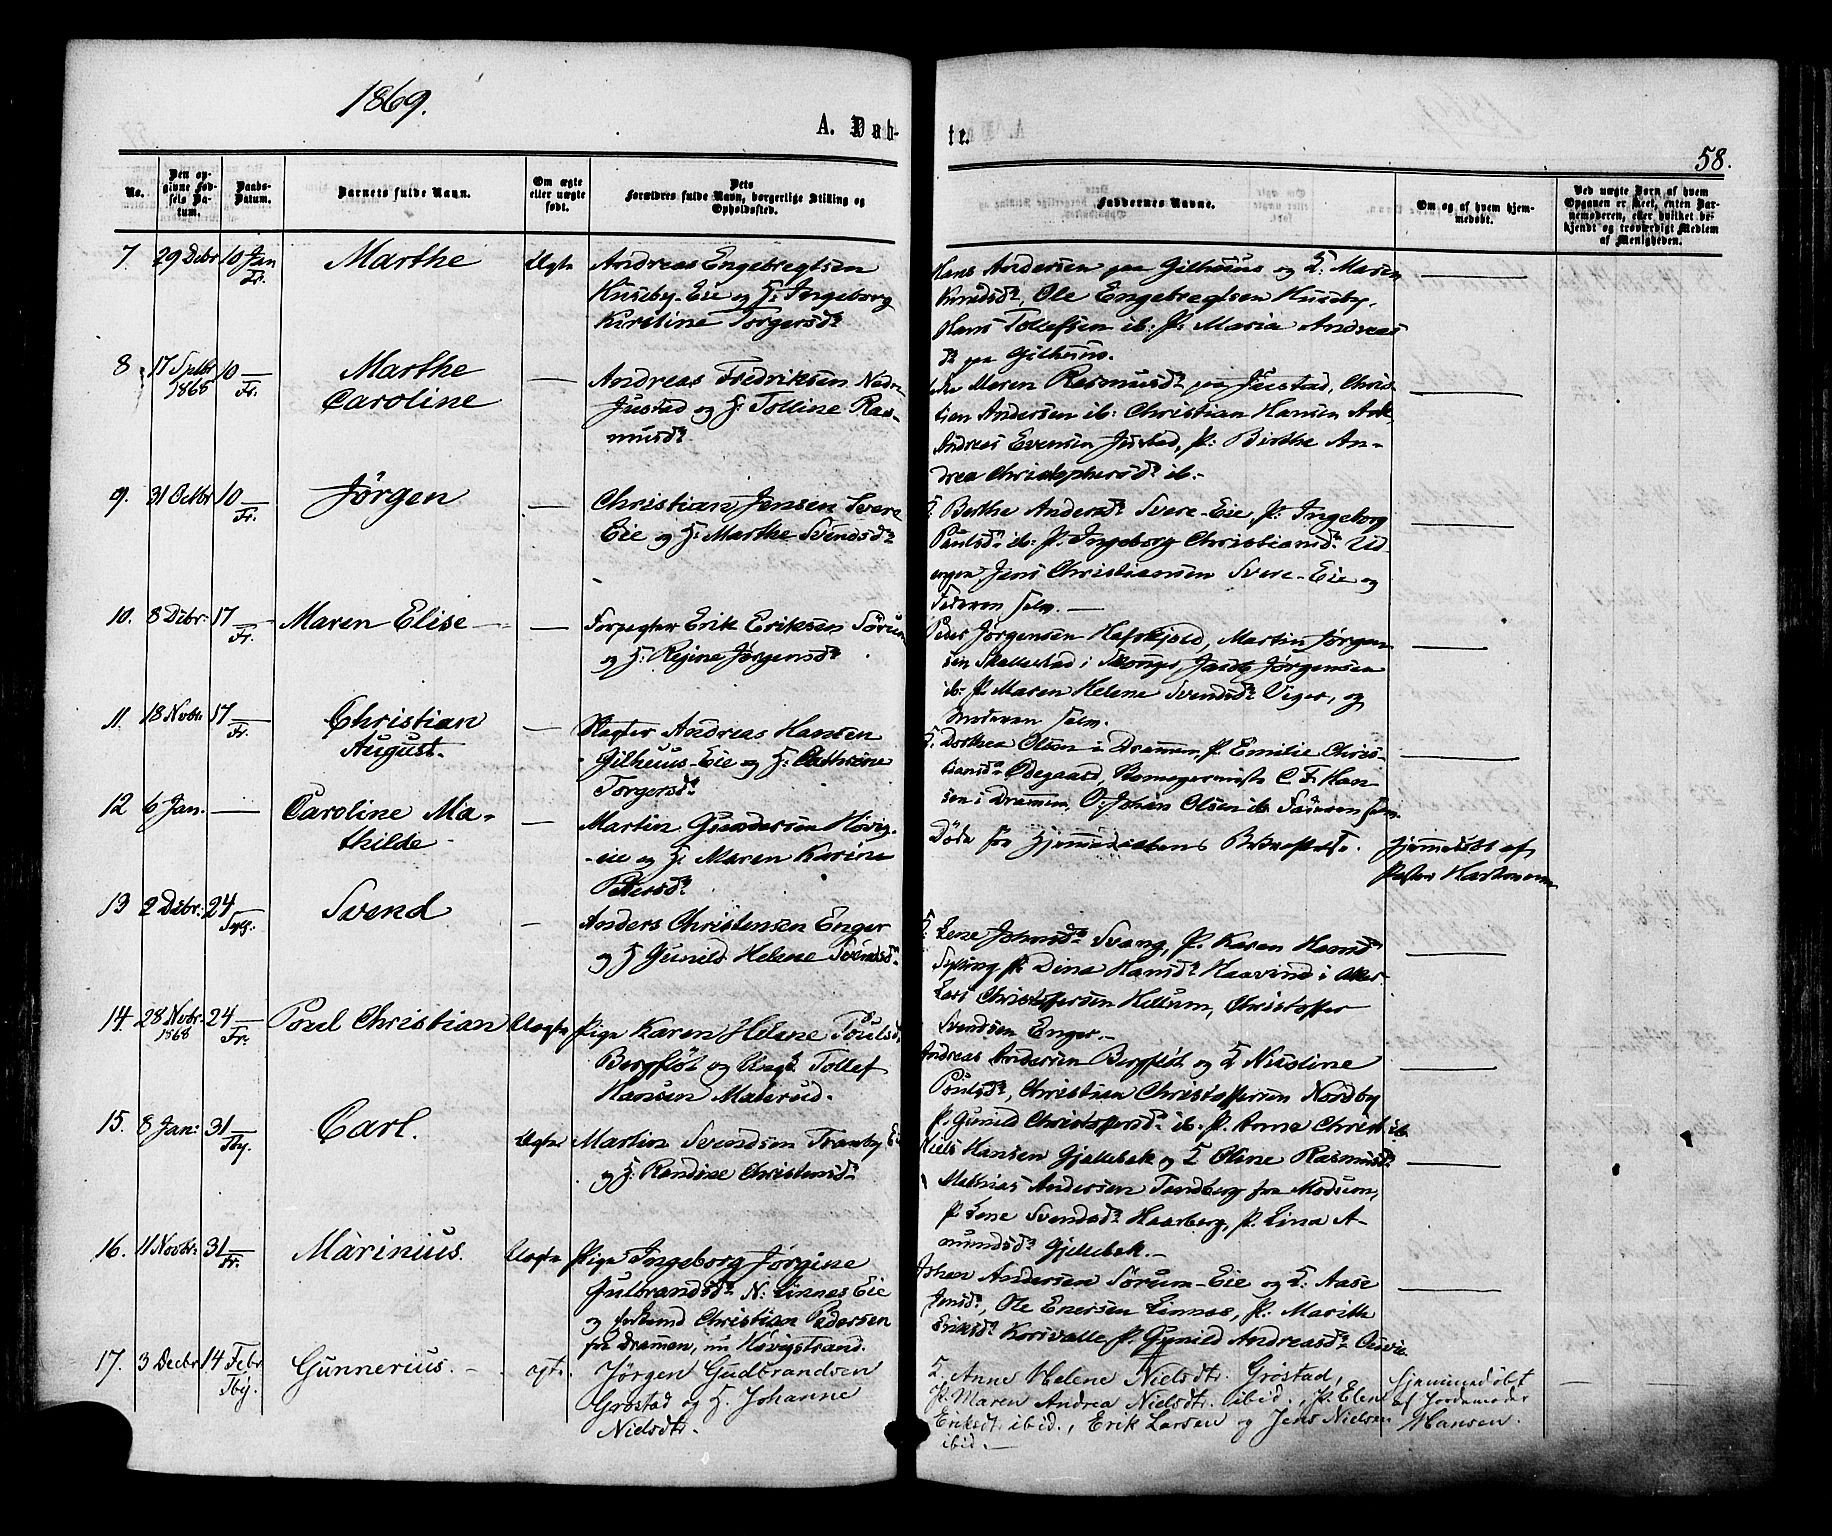 1869.
A. Døb-
te.
58.
No.
Den op-
givne Fød-
sels Da-
tum.
Daabs-
Datum.
Barnets fulde Navn.
Om ægte
eller uægte
født.
Dets
Forældres fulde Navn, borgerlige Stilling og
Opholdssted.
Faddernes Navne.
Om og af hvem hjem-
medøbt.
Ved uægte Børn af hvem
Opgaven er skeet, enten Bar-
nemoderen, eller hvilket be-
kjendt og troværdigt Medlem
af Menigheden.
7. 29 Debr 10 Jan
Fr.
Marthe
Ægte
Andreas Engebregtsen
Huseby-Eie og H. Ingeborg
Kirstine Torgersdr
Hans Andersen paa Gilhuus og K: Maren
Knudsdr, Ole Engebregtsen Huseby,
Hans Tollefsen ib: P. Maria Andreas
dr paa Gilhuus.
8 17 Septbr 10
1865
Fr.
Marthe
Caroline
Andreas Fredriksen Nedr
Justad og H. Tolline Ras-
musdr
Maren Rasmusdr paa Justad, Chris-
tian Andersen ib: Christian Hansen Ask,
Andreas Evensen Justad, P: Birthe An-
drea Christophersdr ib.
9. 31 Octbr 10
Fr.
Jørgen
Christian Jensen Svere
Eie og H. Marthe Svendsdr
K. Berthe Andersdr Svere-Eie, P. Ingeborg
Paulsdr ib: P. Ingeborg Christiansdr Ud-
engen, Jens Christiansen Svere-Eie og
Faderen selv.
10. 8 Debr: 17
Fr.
Maren Elise
Forpagter Erik Eriksen Sørum
og H. Regine Jørgensdr
Peder Jørgensen Hafskjold, Martin Jørgen
sen Skallestad i Skouger, Jacob Jørgensen
ib: P. Maren Helene Svendsdr Viger, og
Moderen selv.
11. 18 Novbr 17
Fr.
Christian
August.
Slagter Andreas Hansen
Gilhuus-Eie og H. Cathrine
Torgersdr
K. Dorthea Olsen i Drammen, P. Emilie Chris-
tiansdr Ødegaard, C. F. Han
sen i Drammen, O. Johan Olsen ib. Faderen selv.
12 6 Jan.
Caroline Ma-
thilde
Martin Gundersen Høvig-
eie og H. Maren Karine
Petersdr
Døde før Hjemmedaabens Bekræftelse.
Hjemmedøbt af
Pastor
13 2 Debr: 24
Sylg.
Svend
Anders Christensen Enger
og H Gunild Helene Svendsdr
K. Lene Johnsdr Svang, P. Karen Hansdr
Sylling P. Dina Hansdr Haavind i Asker
Lars Christophersen Hellum, Christoffer
Svendsen Enger.
14. 28 Novbr. 24
1868
Fr.
Poul Christian
Uægte
Pige Karen Helene Poulsdr
Bergfløt og Ungk Tollef
Hansen Materud.
Andreas Andersen Bergfløt og K Nicoline
Poulsdr, Christian Christoffersen Nordby
P. Gunild Christoffersdr ib. P. Anna Christ ib.
15. 8 Jan: 31
Tby.
Carl.
Ægte
Martin Svendsen Tranby Eie
og H. Randine Christensdr
Niels Hansen Gjellebek og K Oline Rasmusdr
Mathias Andersen Tandberg fra Modum,
P. Lene Svendsdr Haarberg, P. Lina A-
mundsdr Gjellebek.
16. 11 Novbr: 31
Fr.
Marinius.
Uægte
Pige Ingeborg Jørgine
Gulbrandsdr N: Linnes Eie
og Christian Pedersen
fra Drammen, nu Høvigstrand.
Johan Andersen Sørum-Eie og K. Aase
Jensdr, Ole Enersen Linnes, P. Marithe
Eriksdr Korsvalle, P. Gunild Andreasdr
17. 3 Decbr 14 Febr
Tby.
Gunnerius.
ægte.
Jørgen Gudbrandsen
Grøstad og H. Johanne
Nielsdtr.
K. Anne Helene Nielsdtr. Grøstad,
P. Maren Andrea Nielsdtr. ibid., P. Elen
Eriksdt. ibid., Erik Larsen og Jens Nielsen
ibid.
Hjemmedøbt
af Jordemoder
Hansen.